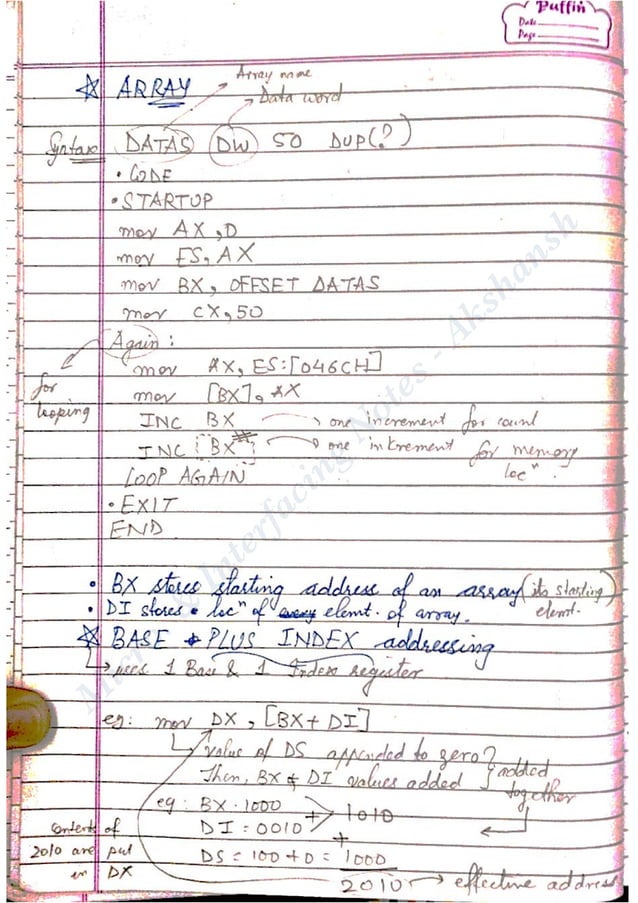 Puffin
Date
Page
☆ ARRAY
Array name
Data word
Syntax DATAS DW 50 DUP(?)
.CODE
.STARTUP
mov AX,0
mov ES,AX
mov BX, OFFSET DATAS
mov CX,50
Again:
for looping
mov AX, ES:[046CH]
mov [BX], AX
INC BX → one increment for count
INC BX → one inkrement for memory locⁿ
LOOP AGAIN
.EXIT
END
• BX stores starting address of an array (its starting elemt.
• DI stores locⁿ of elemt. of array.
☆ BASE PLUS INDEX addressing
→ uses 1 Base & 1 Index register
eg: mov DX, [BX+DI]
value of DS appended to zero?
Then, BX & DI values added } added together
eg: BX.1000
DI=0010 + > 1010
+
DS=100+0=1000
2010 → effective address
Contents of
2010 are put
in DX
Interfacing Notes - Akshansh